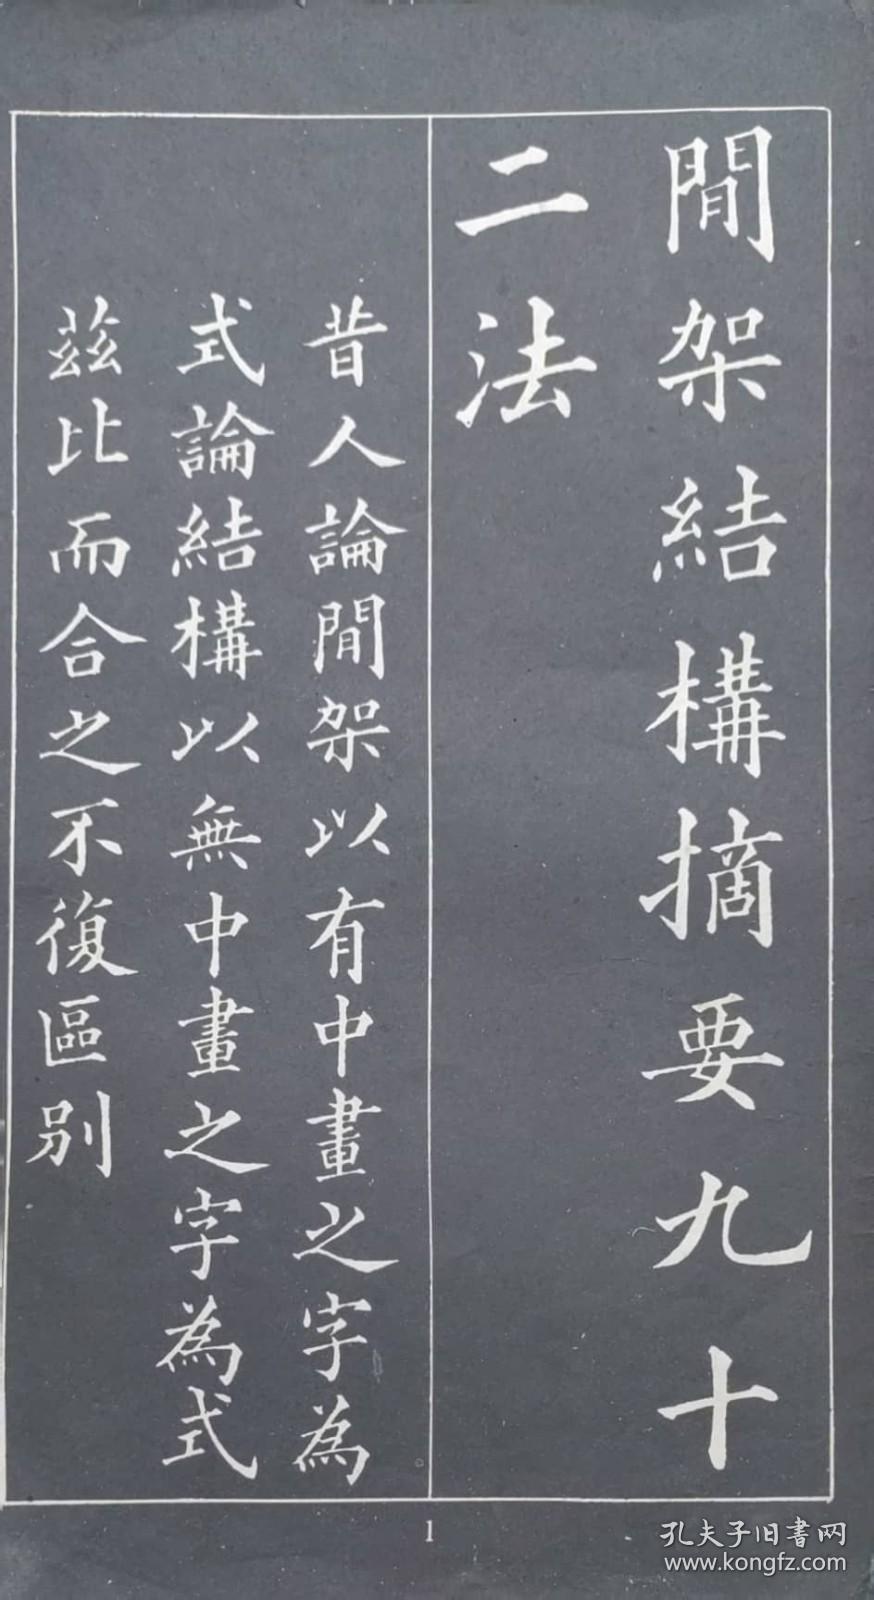 閒架結構摘要九十
二法
昔人論閒架以有中畫之字為
式論結構以無中畫之字為式
茲比而合之不復區别
1
孔夫子旧書网
www.kongfz.com